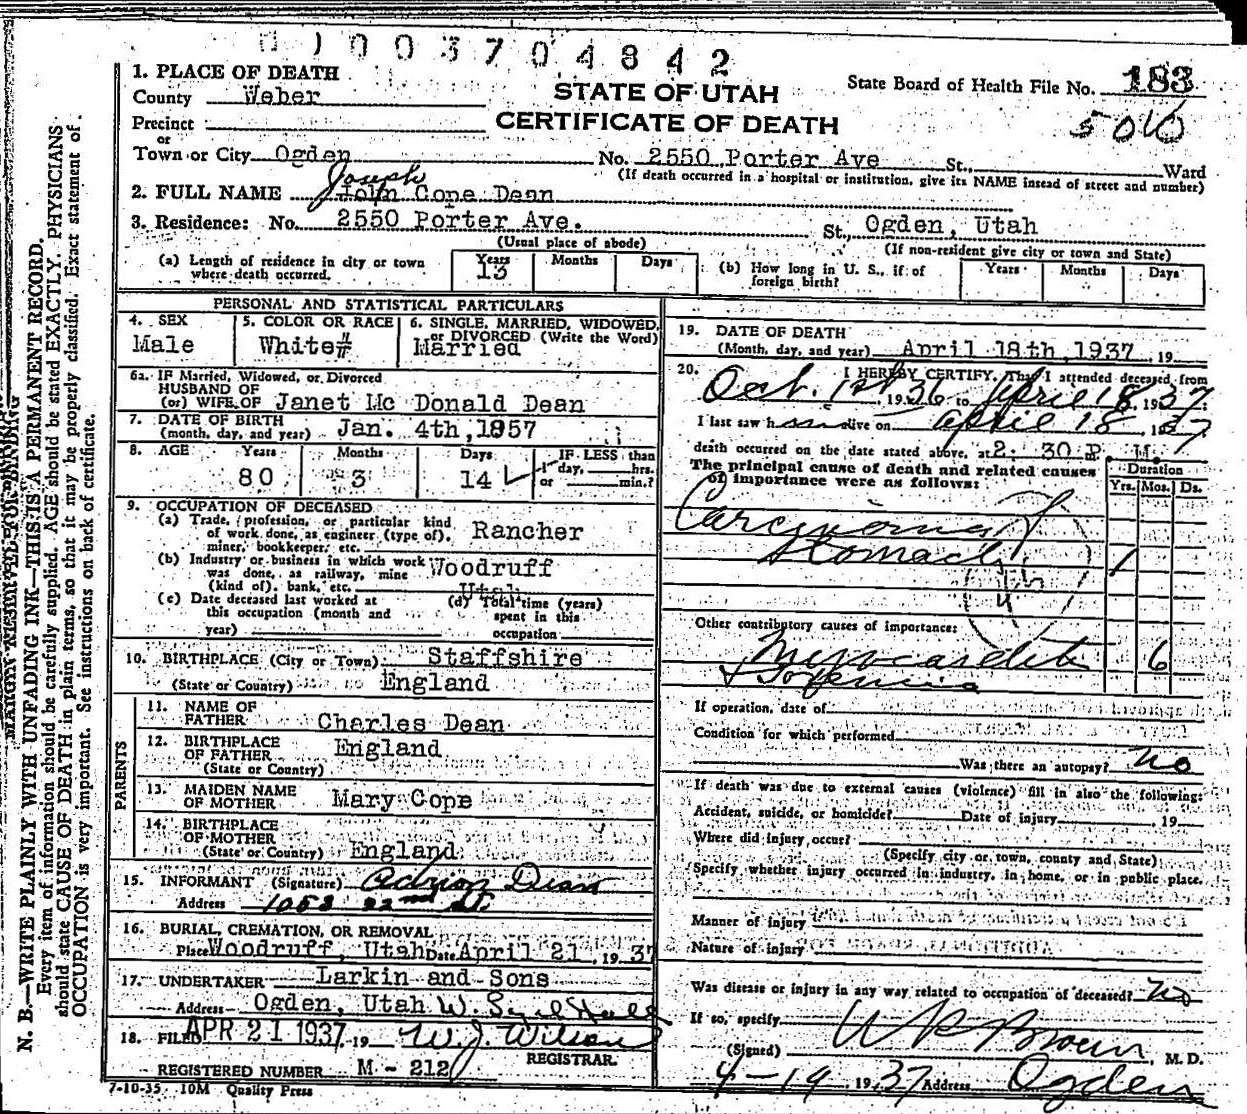 0 1 0 0 3 7 0 4 8 4 2
1. PLACE OF DEATH
County Weber
STATE OF UTAH
CERTIFICATE OF DEATH
State Board of Health File No. 183
Precinct
or
Town or City Ogden No. 2550 Porter Ave St., Ward
(If death occurred in a hospital or institution, give its NAME insead of street and number)
Joseph
2. FULL NAME John Cope Dean
3. Residence: No. 2550 Porter Ave. St., Ogden, Utah
(Usual place of abode) (If non-resident give city or town and State)
(a) Length of residence in city or town where death occurred. Years 13 Months Days
(b) How long in U. S., if of foreign birth? Years Months Days
PERSONAL AND STATISTICAL PARTICULARS
4. SEX Male
5. COLOR OR RACE White#
6. SINGLE, MARRIED, WIDOWED, or DIVORCED (Write the Word) Married
6a. IF Married, Widowed, or Divorced
HUSBAND OF
(or) WIFE OF Janet Mc Donald Dean
7. DATE OF BIRTH
(month, day, and year) Jan. 4th, 1857
8. AGE Years 80 Months 3 Days 14 IF LESS than 1 day, hrs. or min.?
9. OCCUPATION OF DECEASED
(a) Trade, profession, or particular kind of work done, as engineer (type of), miner, bookkeeper, etc. Rancher
(b) Industry or business in which work was done, as railway, mine (kind of), bank, etc. Woodruff Utah
(c) Date deceased last worked at this occupation (month and year)
(d) Total time (years) spent in this occupation
10. BIRTHPLACE (City or Town) Staffshire
(State or Country) England
PARENTS
11. NAME OF FATHER Charles Dean
12. BIRTHPLACE OF FATHER England
(State or Country)
13. MAIDEN NAME OF MOTHER Mary Cope
14. BIRTHPLACE OF MOTHER
(State or Country) England
15. INFORMANT (Signature) Adrian Dean
Address 1053 22nd St.
16. BURIAL, CREMATION, OR REMOVAL
Place Woodruff, Utah Date April 21, 1937
17. UNDERTAKER Larkin and Sons
Address Ogden, Utah W.
18. FILED APR 21 1937 19 W. J. Wilson
REGISTRAR.
REGISTERED NUMBER M - 212
7-10-35 10M Quality Press
19. DATE OF DEATH
(Month, day, and year) April 18th, 1937, 19
20. I HEREBY CERTIFY, That I attended deceased from
Oct. 1st, 1936 to April 18, 1937.
I last saw him alive on April 18, 1937
death occurred on the date stated above, at 2: 30 P. M.
The principal cause of death and related causes of importance were as follows:
Duration
Yrs. Mos. Ds.
Carcinoma of
Stomach 1
Other contributory causes of importance:
Myocarditis 6
If operation, date of
Condition for which performed
Was there an autopsy? No
If death was due to external causes (violence) fill in also the following:
Accident, suicide, or homicide? Date of injury , 19
Where did injury occur?
(Specify city or town, county and State)
Specify whether injury occurred in industry, in home, or in public place.
Manner of injury
Nature of injury
Was disease or injury in any way related to occupation of deceased? No
If so, specify
(Signed) W R Brown, M. D.
4-19 1937 Address Ogden
N. B.—WRITE PLAINLY WITH UNFADING INK—THIS IS A PERMANENT RECORD.
Every item of information should be carefully supplied. AGE should be stated EXACTLY. PHYSICIANS
should state CAUSE OF DEATH in plain terms, so that it may be properly classified. Exact statement of
OCCUPATION is very important. See instructions on back of certificate.